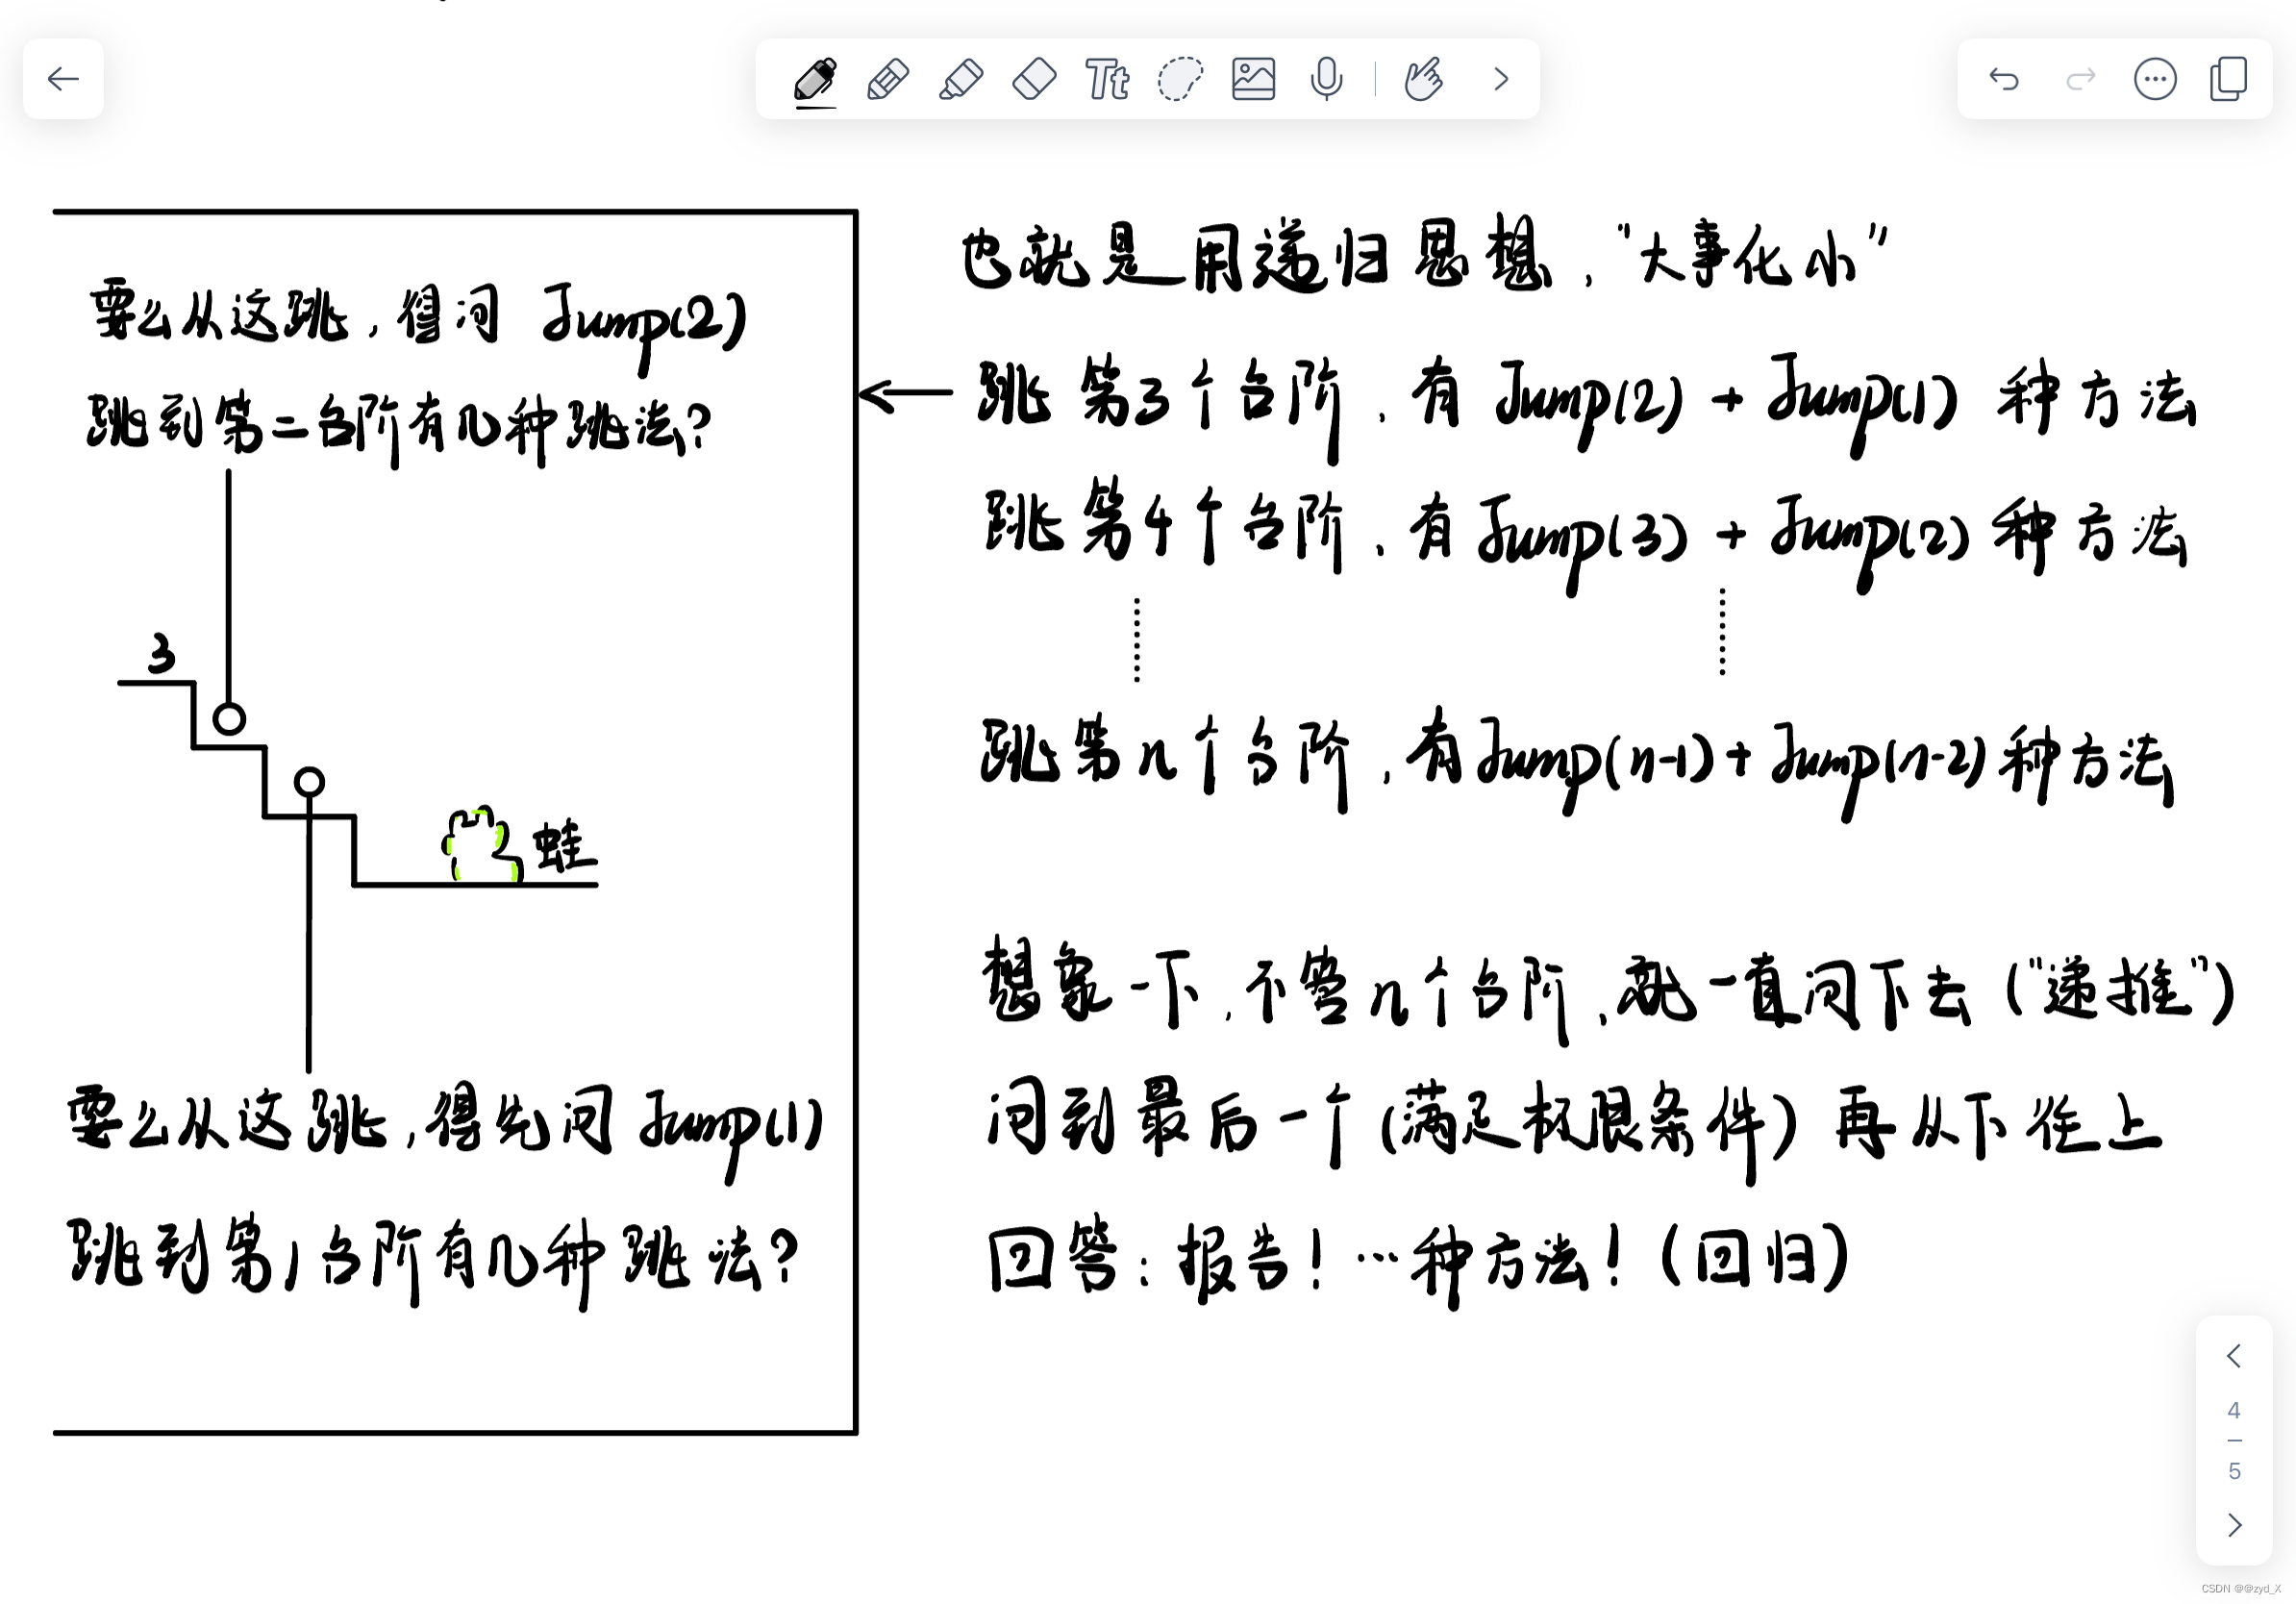 Tt
要么从这跳，得问 Jump(2)
跳到第二台阶有几种跳法?
3
蛙
要么从这跳，得先问 Jump(1)
跳到第1台阶有几种跳法?
也就是用递归思想，“大事化小”
跳第3个台阶，有 Jump(2) + Jump(1) 种方法
跳第4个台阶，有 Jump(3) + Jump(2) 种方法
跳第n个台阶，有 Jump(n-1) + Jump(n-2) 种方法
想象一下，不管n个台阶，就一直问下去 (“递推”)
问到最后一个 (满足极限条件) 再从下往上
回答：报告！…种方法！(回归)
4
5
CSDN @@zyd_X